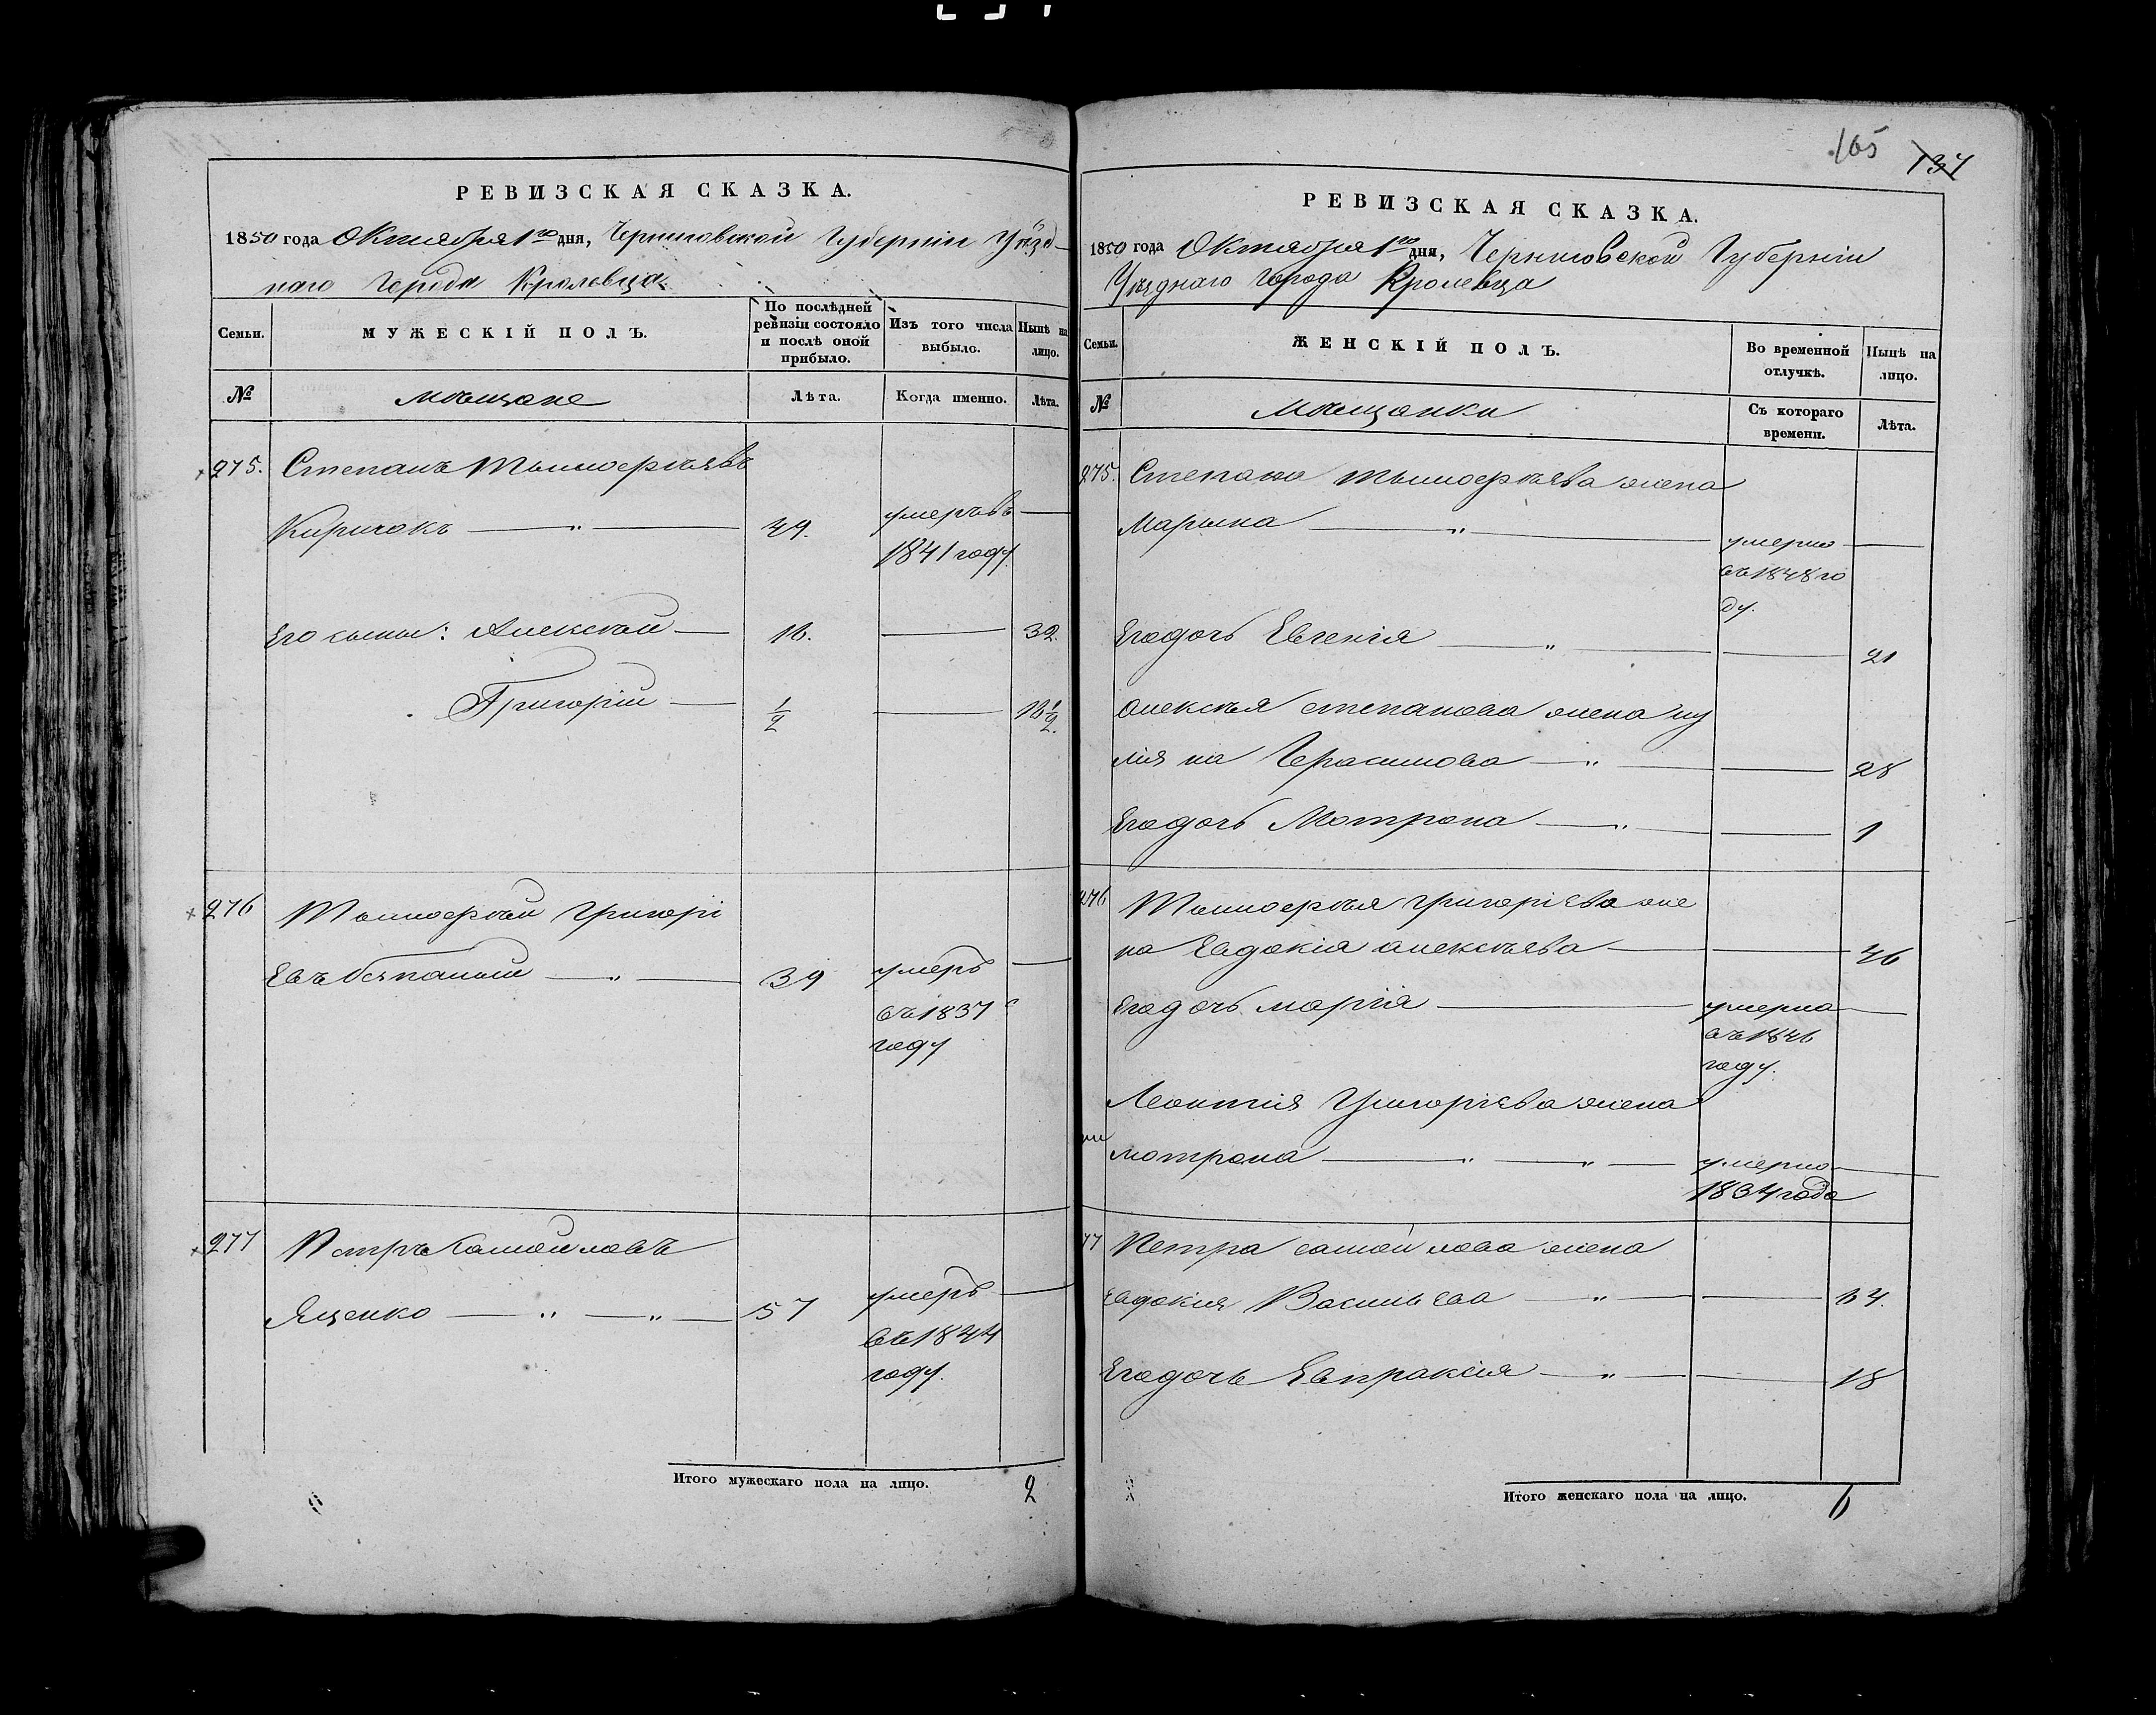 РЕВИЗСКАЯ СКАЗКА.
1850 года Октября 1го дня, Черниговской Губернiи Уѣзд-
наго Города Кролевца
Семьи.
МУЖЕСКIЙ ПОЛЪ.
По послѣдней ревизiи состояло и послѣ оной прибыло.
Изъ того числа выбыло.
Нынѣ на лицо.
№
мѣщане
Лѣта.
Когда именно.
Лѣта.
275. Степанъ Тимоѳѣевъ
Киричокъ — " — 49. умеръ въ —
1841 году.
Его сыны: Алексѣй — 16. — 32.
Григорiй — 1/2 — 16 1/2.
276 Тимоѳѣй Григорi
евъ — " — 39 умеръ —
въ 1837
году
277 Петръ Самойловъ
Яценко — " — " — 57 умеръ —
въ 1844
году.
Итого мужескаго пола на лицо. 2
165 137
РЕВИЗСКАЯ СКАЗКА.
1850 года Октября 1го дня, Черниговской Губернiи
Уѣзднаго Города Кролевца
Семьи.
ЖЕНСКIЙ ПОЛЪ.
Во временной отлучкѣ.
Нынѣ на лицо.
№
Мѣщанки
Съ котораго времени.
Лѣта.
275. Степана Тимоѳѣева жена
Марина — " — умерла —
въ 1848 го
ду.
Егодочь Евгенiя — " — — 21
Алексѣя степанова жена иу
лiяна Герасимова — " — — 28
Егодочь Мотрона — " — — 1
276 Тимоѳѣя Григорiева же
на Евдокiя алексѣева — — 46
Егодочь марiя — умерла —
въ 1846
году.
Леонтiя Григорiева жена
мотрона — " — " — умерла —
1834 года
77 Петра самойлова жена
евдокия Василева — " — — 64.
Егодочь Евпраксiя — " — — 18
Итого женскаго пола на лицо. 6